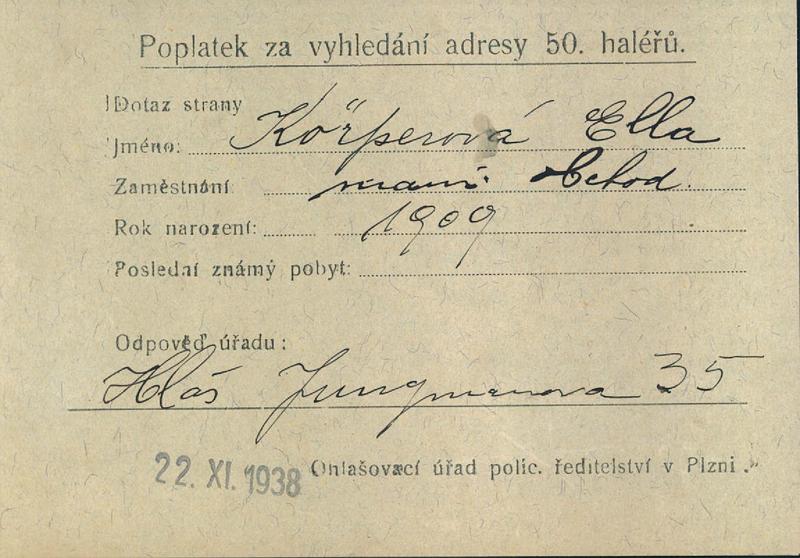 Poplatek za vyhledání adresy 50. haléřů.
Dotaz strany
Jméno: Körperová Ella
Zaměstnání
Rok narození: 1909
Poslední známý pobyt:
Odpověď úřadu:
Hlás Jungmanova 35
22. XI. 1938 Ohlašovací úřad polic. ředitelství v Plzni.